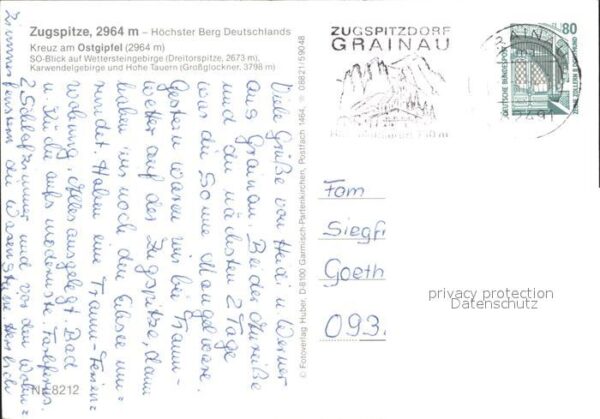 Zugspitze, 2964 m – Höchster Berg Deutschlands
Kreuz am Ostgipfel (2964 m)
SO-Blick auf Wettersteingebirge (Dreitorspitze, 2673 m),
Karwendelgebirge und Hohe Tauern (Großglockner, 3798 m)
Viele Grüße von Heidi u. Werner
aus Grainau. Bei der Anreise
und den nächsten 2 Tage
war die Sonne Mangelware.
Gestern waren wir bei Traum-
wetter auf der Zugspitze, dann
haben wir noch den Eibsee um-
rundet. Haben eine Traum-Ferien-
wohnung. Alles ausgelegt. Bad
u. Küche aufs modernste
2 Schlafzimmer und vor den Wohn-
zimmerfenstern die
Nr. 8212
© Fotoverlag Huber, D-8100 Garmisch-Partenkirchen, Postfach 1464, ☎ 08821/59048
ZUGSPITZDORF
GRAINAU
80
DEUTSCHE BUNDESPOST
Fam
Siegfr
Goeth
093.
privacy protection
Datenschutz